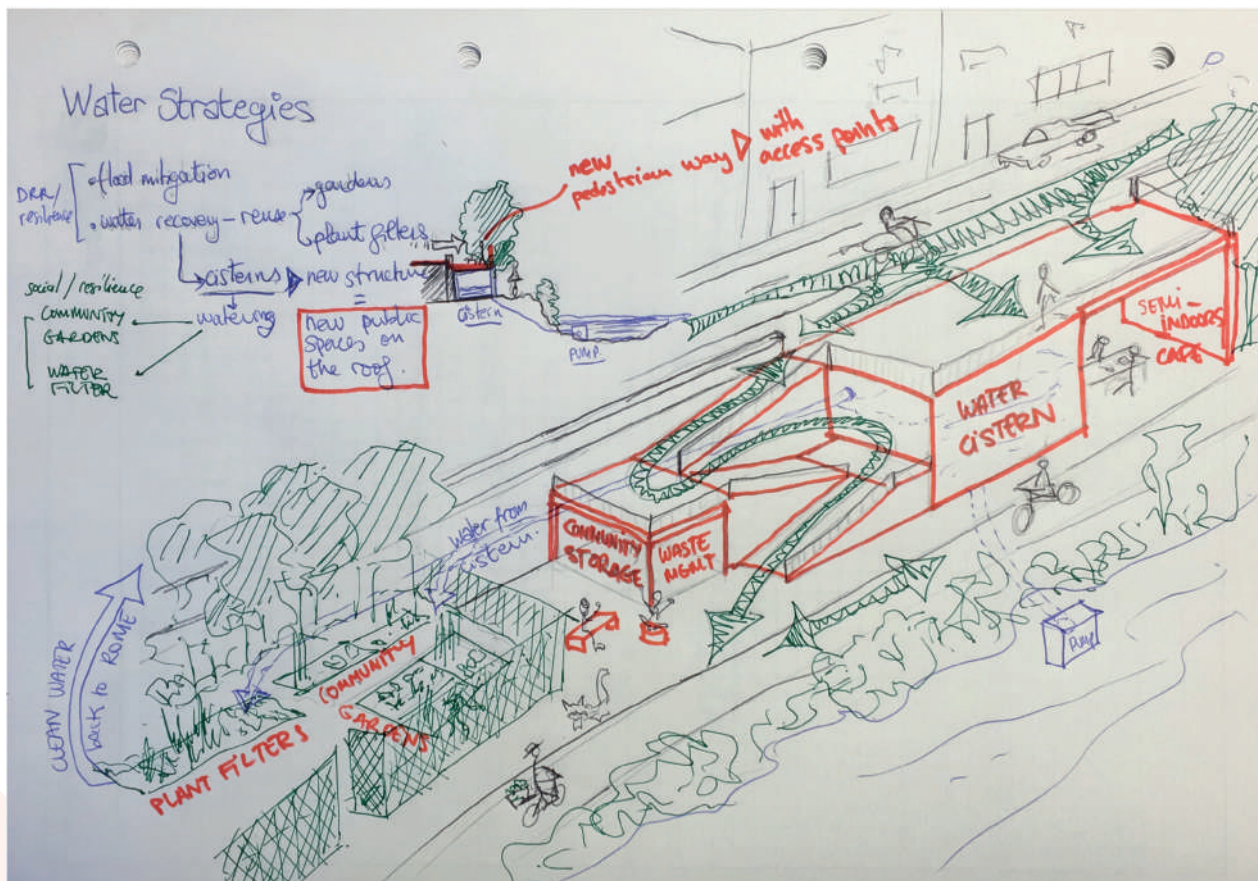 Water Strategies
DRR/
resilience
• flood mitigation
• water recovery – reuse
gardens
plant filters
cisterns
new structure
=
watering
new public
spaces on
the roof.
social / resilience
COMMUNITY
GARDENS
WATER
FILTER
cistern
PUMP
new
pedestrian way
with
access points
P
SEMI-
INDOORS
CAFE
WATER
CISTERN
COMMUNITY
STORAGE
WASTE
MGMT
water from
cistern.
COMMUNITY
GARDENS
PLANT FILTERS
CLEAN WATER
back to ROME
PUMP